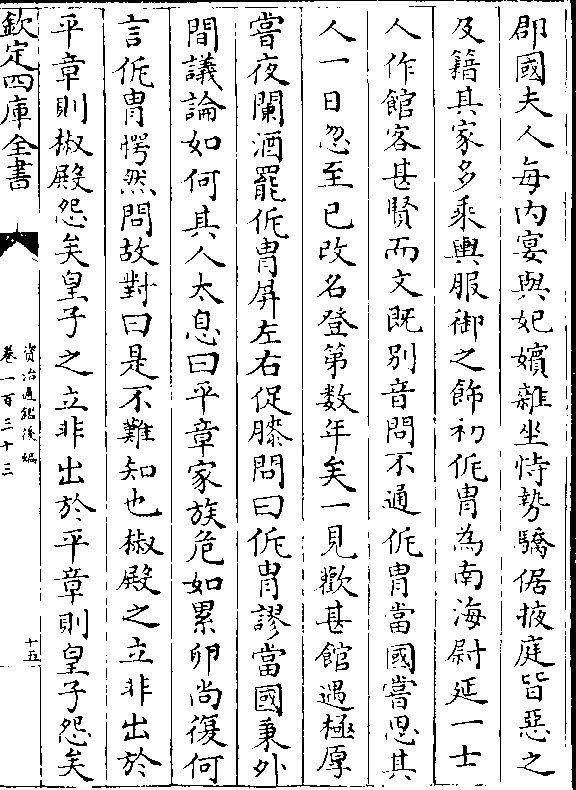 郡國夫人每内宴與妃嬪雜坐恃勢驕倨掖庭皆惡之
及籍其家多乘輿服御之飾初侂胄為南海尉延一士
人作館客甚賢而文既别音問不通侂胄當國嘗思其
人一日忽至已改名登第数年矣一見歡甚館遇極厚
嘗夜闌酒罷侂胄屏左右促膝問曰侂胄謬當國秉外
間議論如何其人太息曰平章家族危如累卵尚復何
言侂胄愕然問故對曰是不難知也椒殿之立非出於
平章則椒殿怨矣皇子之立非出於平章則皇子怨矣
欽定四庫全書
資治通鑑後編
卷一百三十三
十五